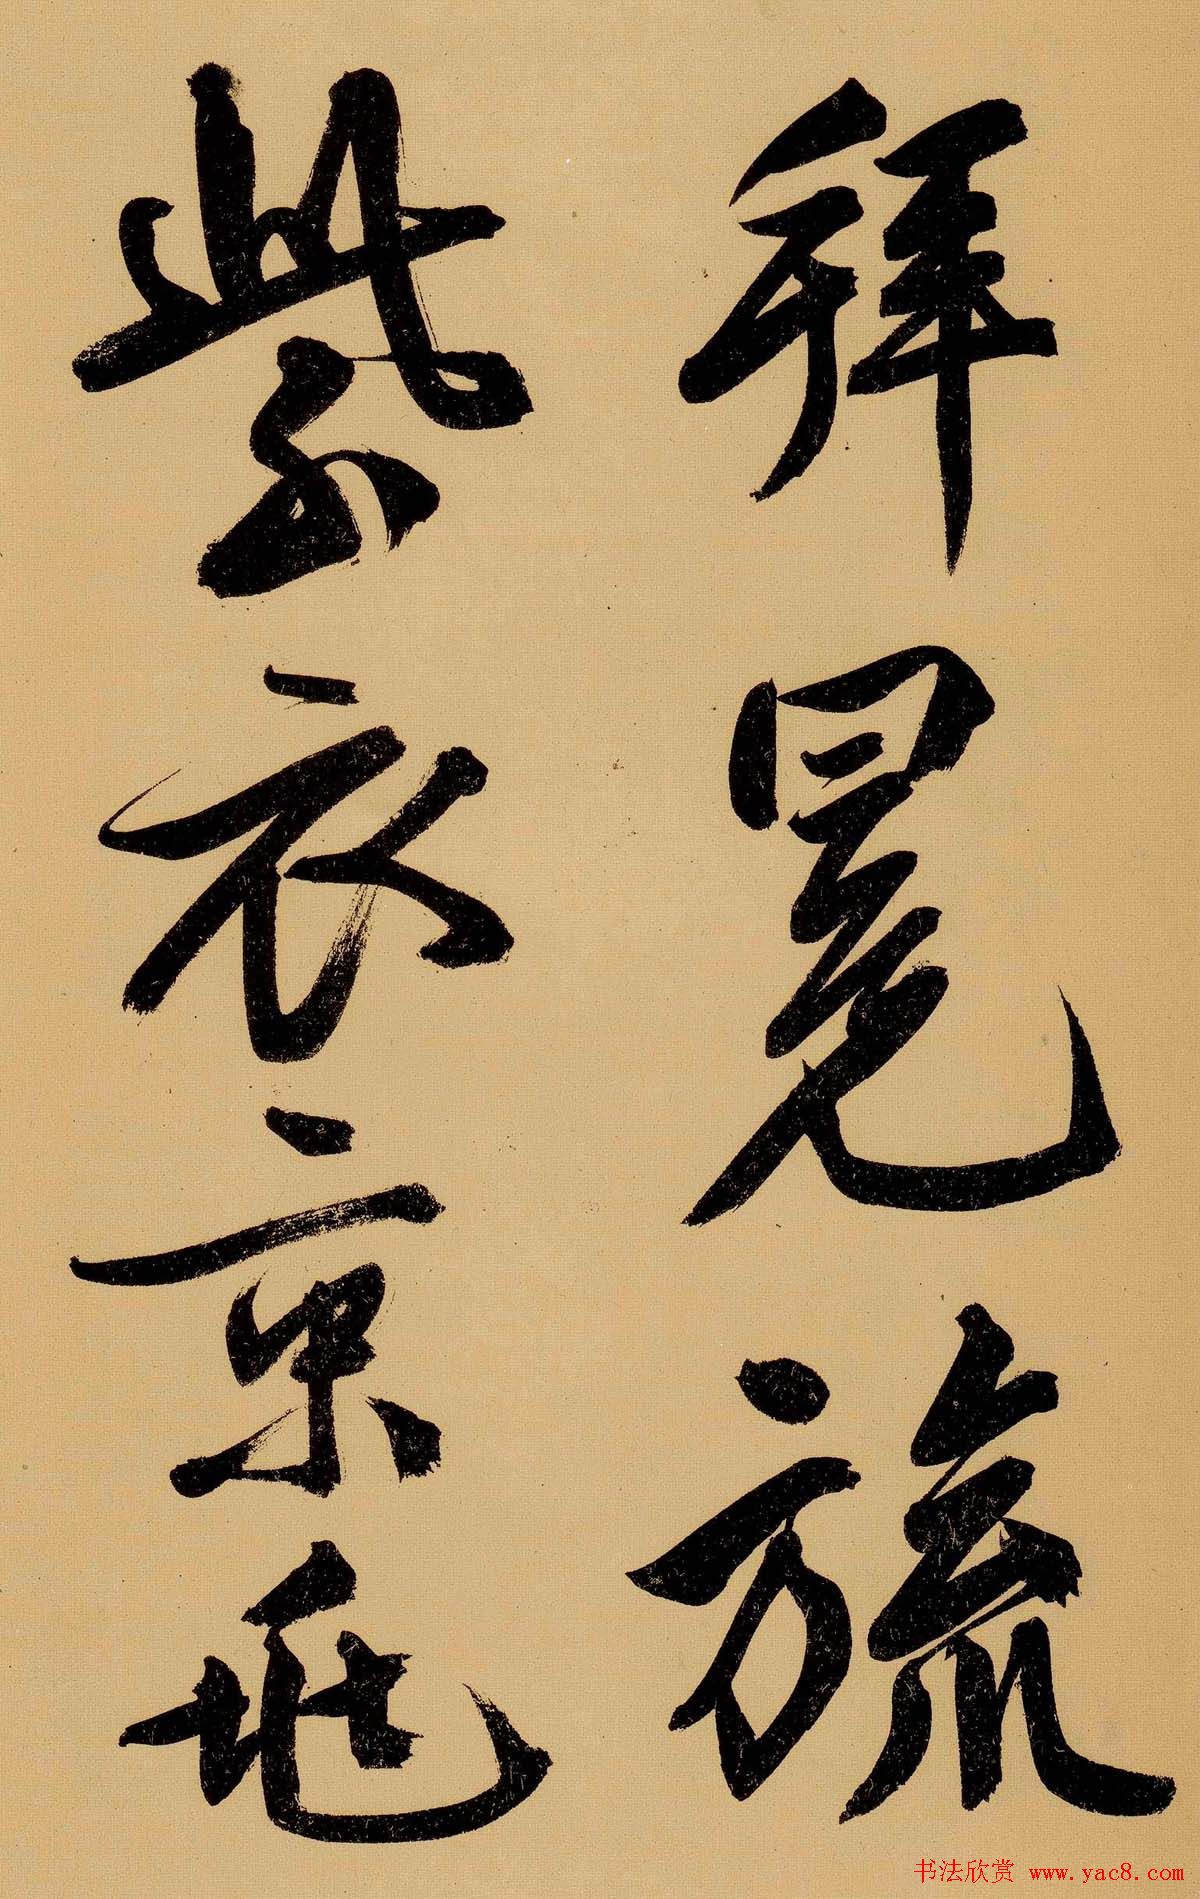 拜冕旒
紫衣京
书法欣赏 www.yac8.com